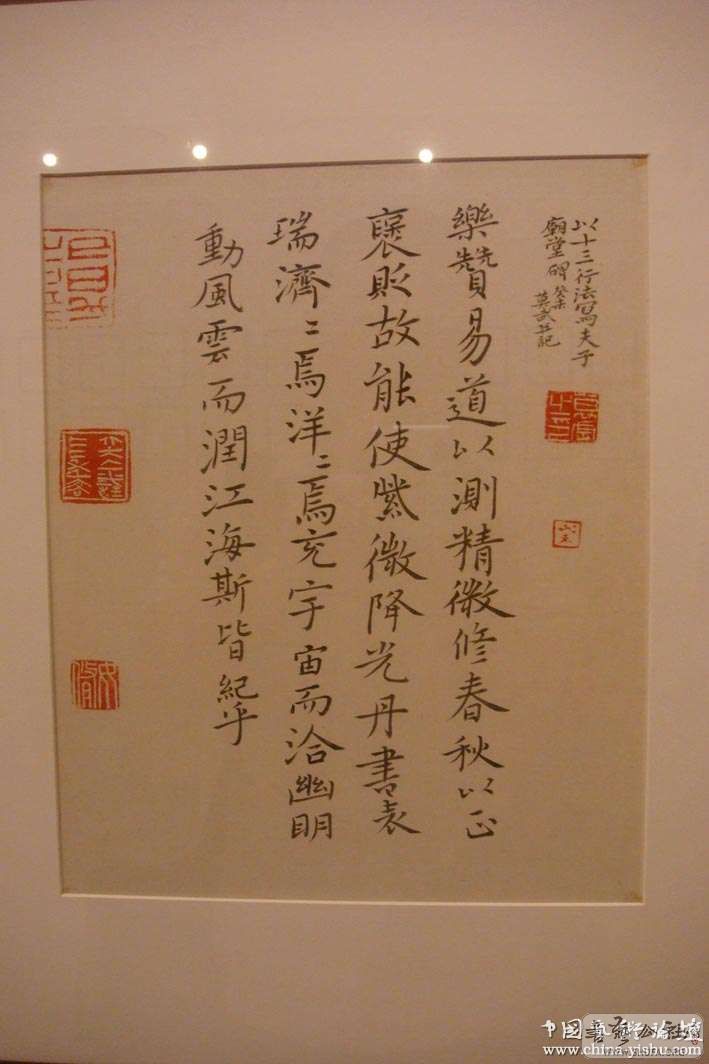 以十三行法寫夫子
廟堂碑
樂贊易道以測精微修春秋以正
褒貶故能使紫微降光丹書表
瑞濟〻焉洋〻焉充宇宙而洽幽明
動風雲而潤江海斯皆紀乎
www.china-yishu.com